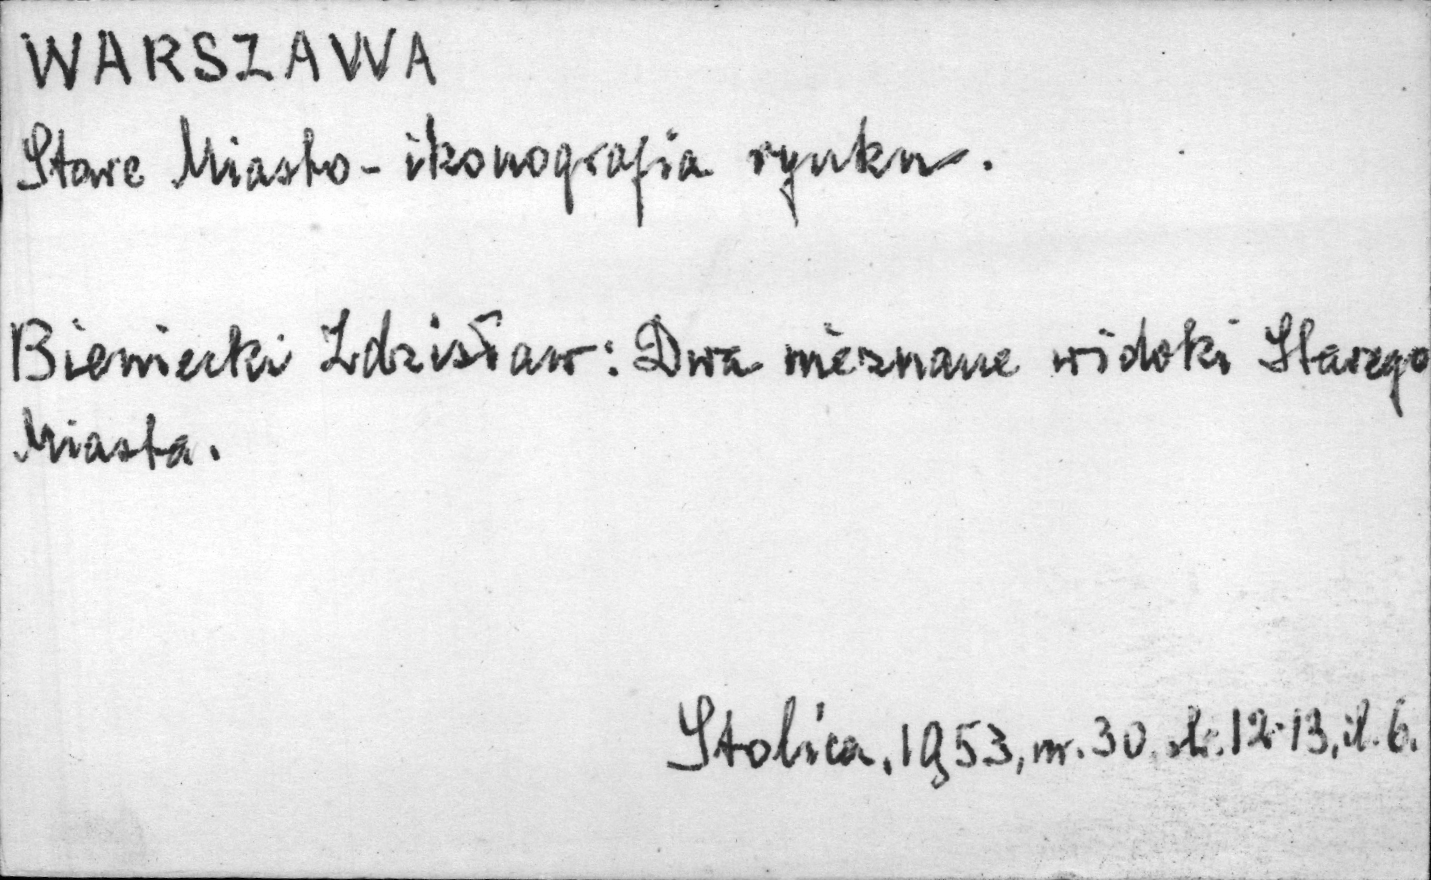 WARSZAWA
Stare Miasto - ikonografia rynku.
Bieniecki Zdzisław: Dwa nieznane widoki Starego
Miasta.
Stolica, 1953, nr. 30. str. 12-13, il. 6.